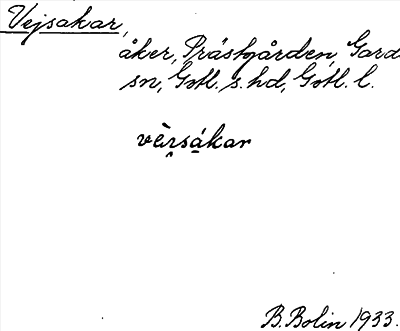 Vejsakar,
åker, Prästgården, Garde
sn, Gotl. s. hd, Gotl. l.
vèrsákar
B. Bolin 1933.